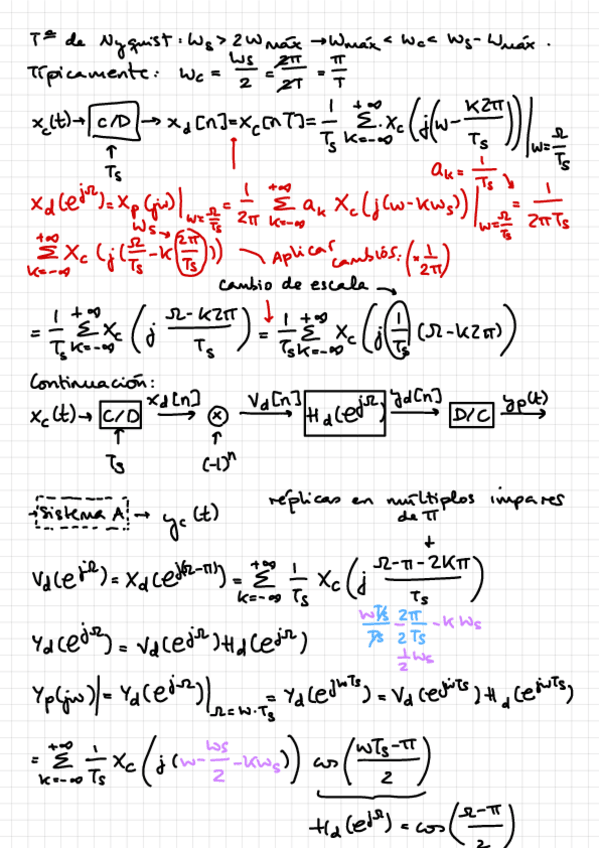 Tª de Nyquist: Ws > 2Wmáx → Wmáx < Wc < Ws - Wmáx.
Típicamente: Wc = Ws/2 = 2π/2T = π/T
xc(t) → C/D → xd[n] = xc[nT] = 1/Ts ∑_{k=-∞}^{+∞} Xc(j(w - k2π/Ts))|_{w=Ω/Ts}
↑
Ts
ak = 1/Ts
Xd(e^{jΩ}) = Xp(jw)|_{w=Ω/Ts} = 1/2π ∑_{k=-∞}^{+∞} ak Xc(j(w-kws))|_{w=Ω/Ts} = 1/2πTs
Ws →
∑_{k=-∞}^{+∞} Xc(j(Ω/Ts - k 2π/Ts)) Aplicar cambios: (× 1/2π)
cambio de escala →
= 1/Ts ∑_{k=-∞}^{+∞} Xc(j Ω-k2π/Ts) = 1/Ts ∑_{k=-∞}^{+∞} Xc(j 1/Ts (Ω-k2π))
Continuación:
xc(t) → C/D xd[n] → ⊗ vd[n] → Hd(e^{jΩ}) yd[n] → D/C yp(t) →
↑ ↑
Ts (-1)^n
→ Sistema A → yc(t)
réplicas en múltiplos impares
de π
↓
Vd(e^{jΩ}) = Xd(e^{j(Ω-π)}) = ∑_{k=-∞}^{+∞} 1/Ts Xc(j Ω-π-2kπ/Ts)
wTs/Ts - 2π/2Ts - kws
1/2 ws
Yd(e^{jΩ}) = Vd(e^{jΩ}) Hd(e^{jΩ})
Yp(jw)| = Yd(e^{jΩ})|_{Ω=w·Ts} = Yd(e^{jwTs}) = Vd(e^{jwTs}) Hd(e^{jwTs})
= ∑_{k=-∞}^{+∞} 1/Ts Xc(j(w - ws/2 - kws)) cos(wTs-π/2)
Hd(e^{jΩ}) = cos(Ω-π/2)